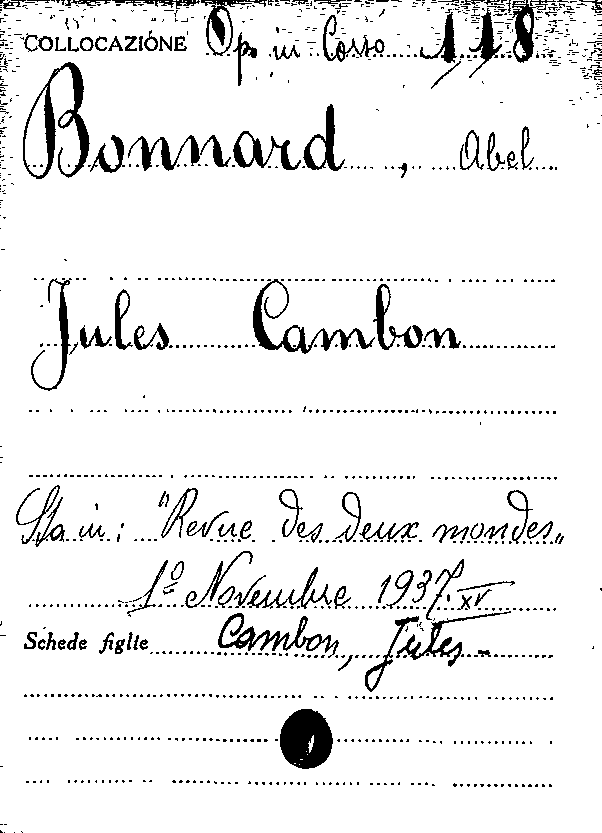 COLLOCAZIONE Op. in Corso 118
Bonnard, Abel
Jules Cambon
Sta in: "Revue des deux mondes"
1º Novembre 1937. XV
Schede figlie Cambon, Jules -